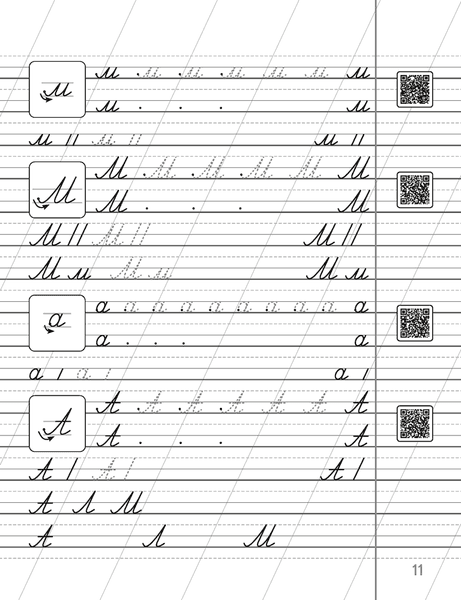 м м м м м м м м
м м
м м м
М М М М М М М
М М
М М М
М м М м М м
а а а а а а а а а а а
а а
а а а
А А А А А А А А
А А
А А А
А Л М
А Л М
11